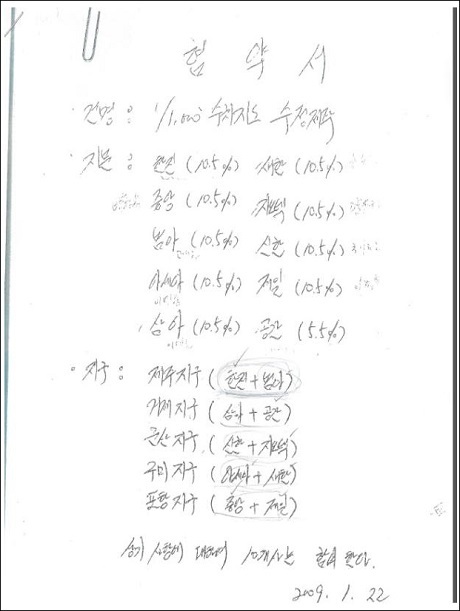 협 약 서
· 건명 : 1/1,000 수치지도 수정제작
· 지분 : 한진 (10.5%) 새한 (10.5%)
중앙 (10.5%) 지텍 (10.5%)
범아 (10.5%) 신한 (10.5%)
아세아 (10.5%) 제일 (10.5%)
삼아 (10.5%) 공간 (5.5%)
· 지구 : 제주지구 ( 한진 + 범아 )
거제지구 ( 삼아 + 공간 )
군산지구 ( 신한 + 지텍 )
구미지구 ( 아세아 + 새한 )
포항지구 ( 중앙 + 제일 )
상기 사항에 대하여 10개사는 합의 한다.
2009. 1. 22